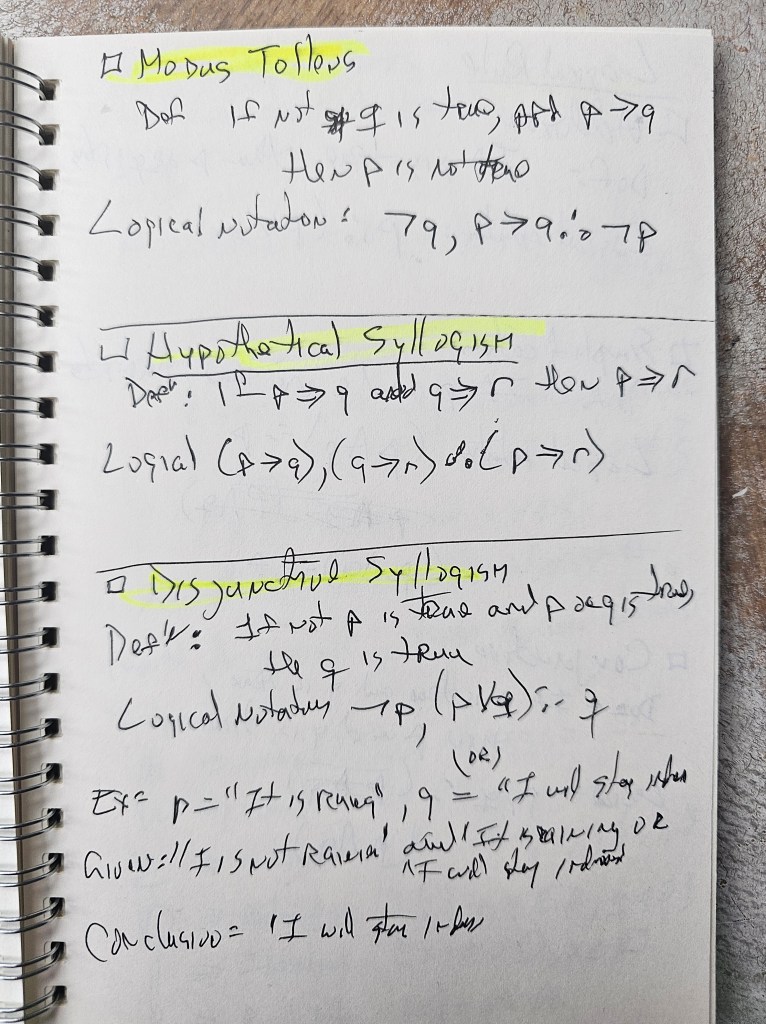 □ Modus Tollens
Def If not q is true, and p → q
then p is not true
Logical Notation: ¬q, p → q ∴ ¬p
□ Hypothetical Syllogism
Def: If p ⇒ q and q ⇒ r then p ⇒ r
Logical (p → q), (q → r) ∴ (p → r)
□ Disjunctive Syllogism
Def'n: If not p is true and p or q is true,
the q is true
Logical Notation ¬p, (p V q) ∴ q
(OR)
Ex = p = "It is raining", q = "I will stay indoors
Given = "I is not Raining" and "It is raining OR
"I will stay indoors
Conclusion = "I will stay indoors